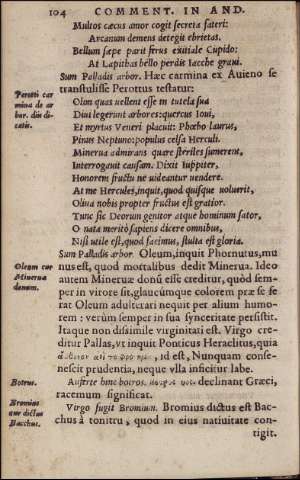 104 COMMENT. IN AND.
Multos cæcus amor cogit secreta fateri:
Arcanum demens detegit ebrietas.
Bellum sæpe parit ferus exitiale Cupido:
At Lapithas bello perdis Iacche graui.
Sum Palladis arbor. Hæc carmina ex Auieno se
transtulisse Perottus testatur:
Perotti car
mina de ar
bur. diis di
catis.
Olim quas uellent esse in tutela sua
Diui legerunt arbores: quercus Ioui,
Et myrtus Veneri placuit: Phœbo laurus,
Pinus Neptuno: populus celsa Herculi.
Minerua admirans quare steriles sumerent,
Interrogauit causam. Dixit Iuppiter,
Honorem fructu ne uideantur uendere.
At me Hercules, inquit, quod quisque uoluerit,
Oliua nobis propter fructus est gratior.
Tunc sic Deorum genitor atque hominum sator,
O nata meritò sapiens dicere omnibus,
Nisi utile est, quod facimus, stulta est gloria.
Sum Palladis arbor. Oleum, inquit Phornutus, mu
nus est, quod mortalibus dedit Minerua. Ideo
Oleum cur
Mineruæ
donum.
autem Mineruæ donũ esse creditur, quòd sem-
per in virore sit, glaucúmque colorem præ se fe
rat Oleum adulterari nequit per alium humo-
rem: verùm semper in sua synceritate persistit.
Itaque non dissimile virginitati est. Virgo cre
ditur Pallas, vt inquit Ponticus Heraclitus, quia
id est, Nunquam conse-
nescit prudentia, neque vlla inficitur labe.
Botrus.
hinc botros. declinant Græci,
racemum significat.
Bromius
cur dictus
Bacchus.
Virgo fugit Bromium. Bromius dictus est Bac-
chus à tonitru, quod in eius natiuitate con-
tigit.